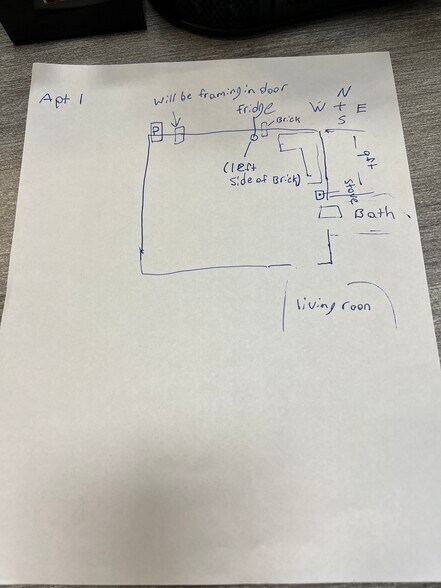 Apt 1
will be framing in door
fridge
Brick
N
W + E
S
P
(left
side of Brick)
stove
Bath
living room